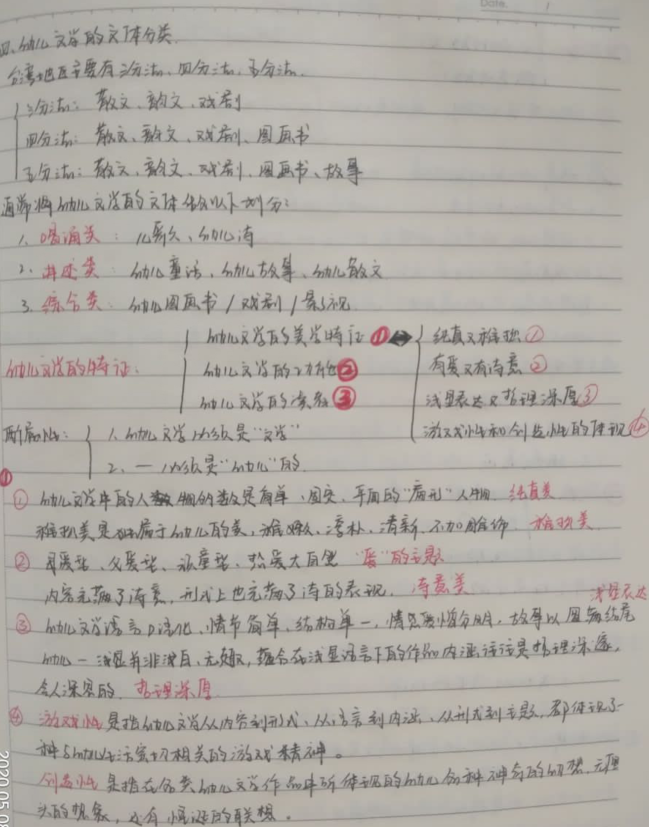 Date. /
四、幼儿文学的文体分类.
台湾地区主要有三分法、四分法、五分法.
三分法: 散文、韵文、戏剧
四分法: 散文、韵文、戏剧、图画书
五分法: 散文、韵文、戏剧、图画书、故事
通常将幼儿文学的文体作以下划分:
1. 唱诵类: 儿歌、幼儿诗
2. 讲述类: 幼儿童话、幼儿故事、幼儿散文
3. 综合类: 幼儿图画书/戏剧/影视
幼儿文学的特征:
幼儿文学的美学特征①
幼儿文学的功能②
幼儿文学的③
纯真又稚拙①
有爱又有诗意②
浅显表达又哲理深厚③
游戏性和创造性的体现④
两属性:
1. 幼儿文学必须是"文学"
2. 一 必须是"幼儿"的
①
① 幼儿文学中的人物的是简单、固定、平面的"扁形"人物. 纯真美
稚拙美是属于幼儿的美, 稚嫩、淳朴、清新、不加雕饰 稚拙美
② 母爱、父爱、大自然 "爱"的主题
内容充满了诗意, 形式上也充满了诗的表现. 诗意美
浅显表达
③ 幼儿文学语言口语化、情节简单、结构单一, 分明, 故事以圆满结尾
幼儿一浅显并非浅白、无, 蕴含在浅显语言下的作品内涵往往是哲理深邃,
令人深思的. 哲理深厚
④ 游戏性是指幼儿文学从内容到形式、从语言到内涵、从形式到主题, 都体现了一
种与幼儿生活密切相关的游戏精神。
创造性是指在各类幼儿文学作品中所体现的幼儿的幻想、无厘
头的想象, 还有的联想。
2020.05.0